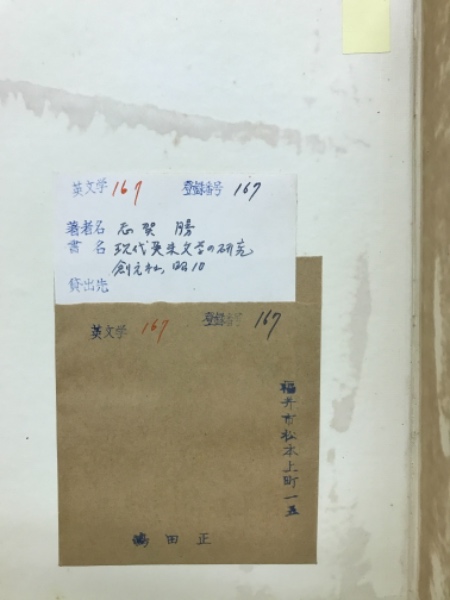 英文学 167 登録番号 167
著者名 志賀 勝
書名 現代英米文学の研究
創元社, 昭10
貸出先
英文学 167 登録番号 167
福井市松本上町一五
嶋田正